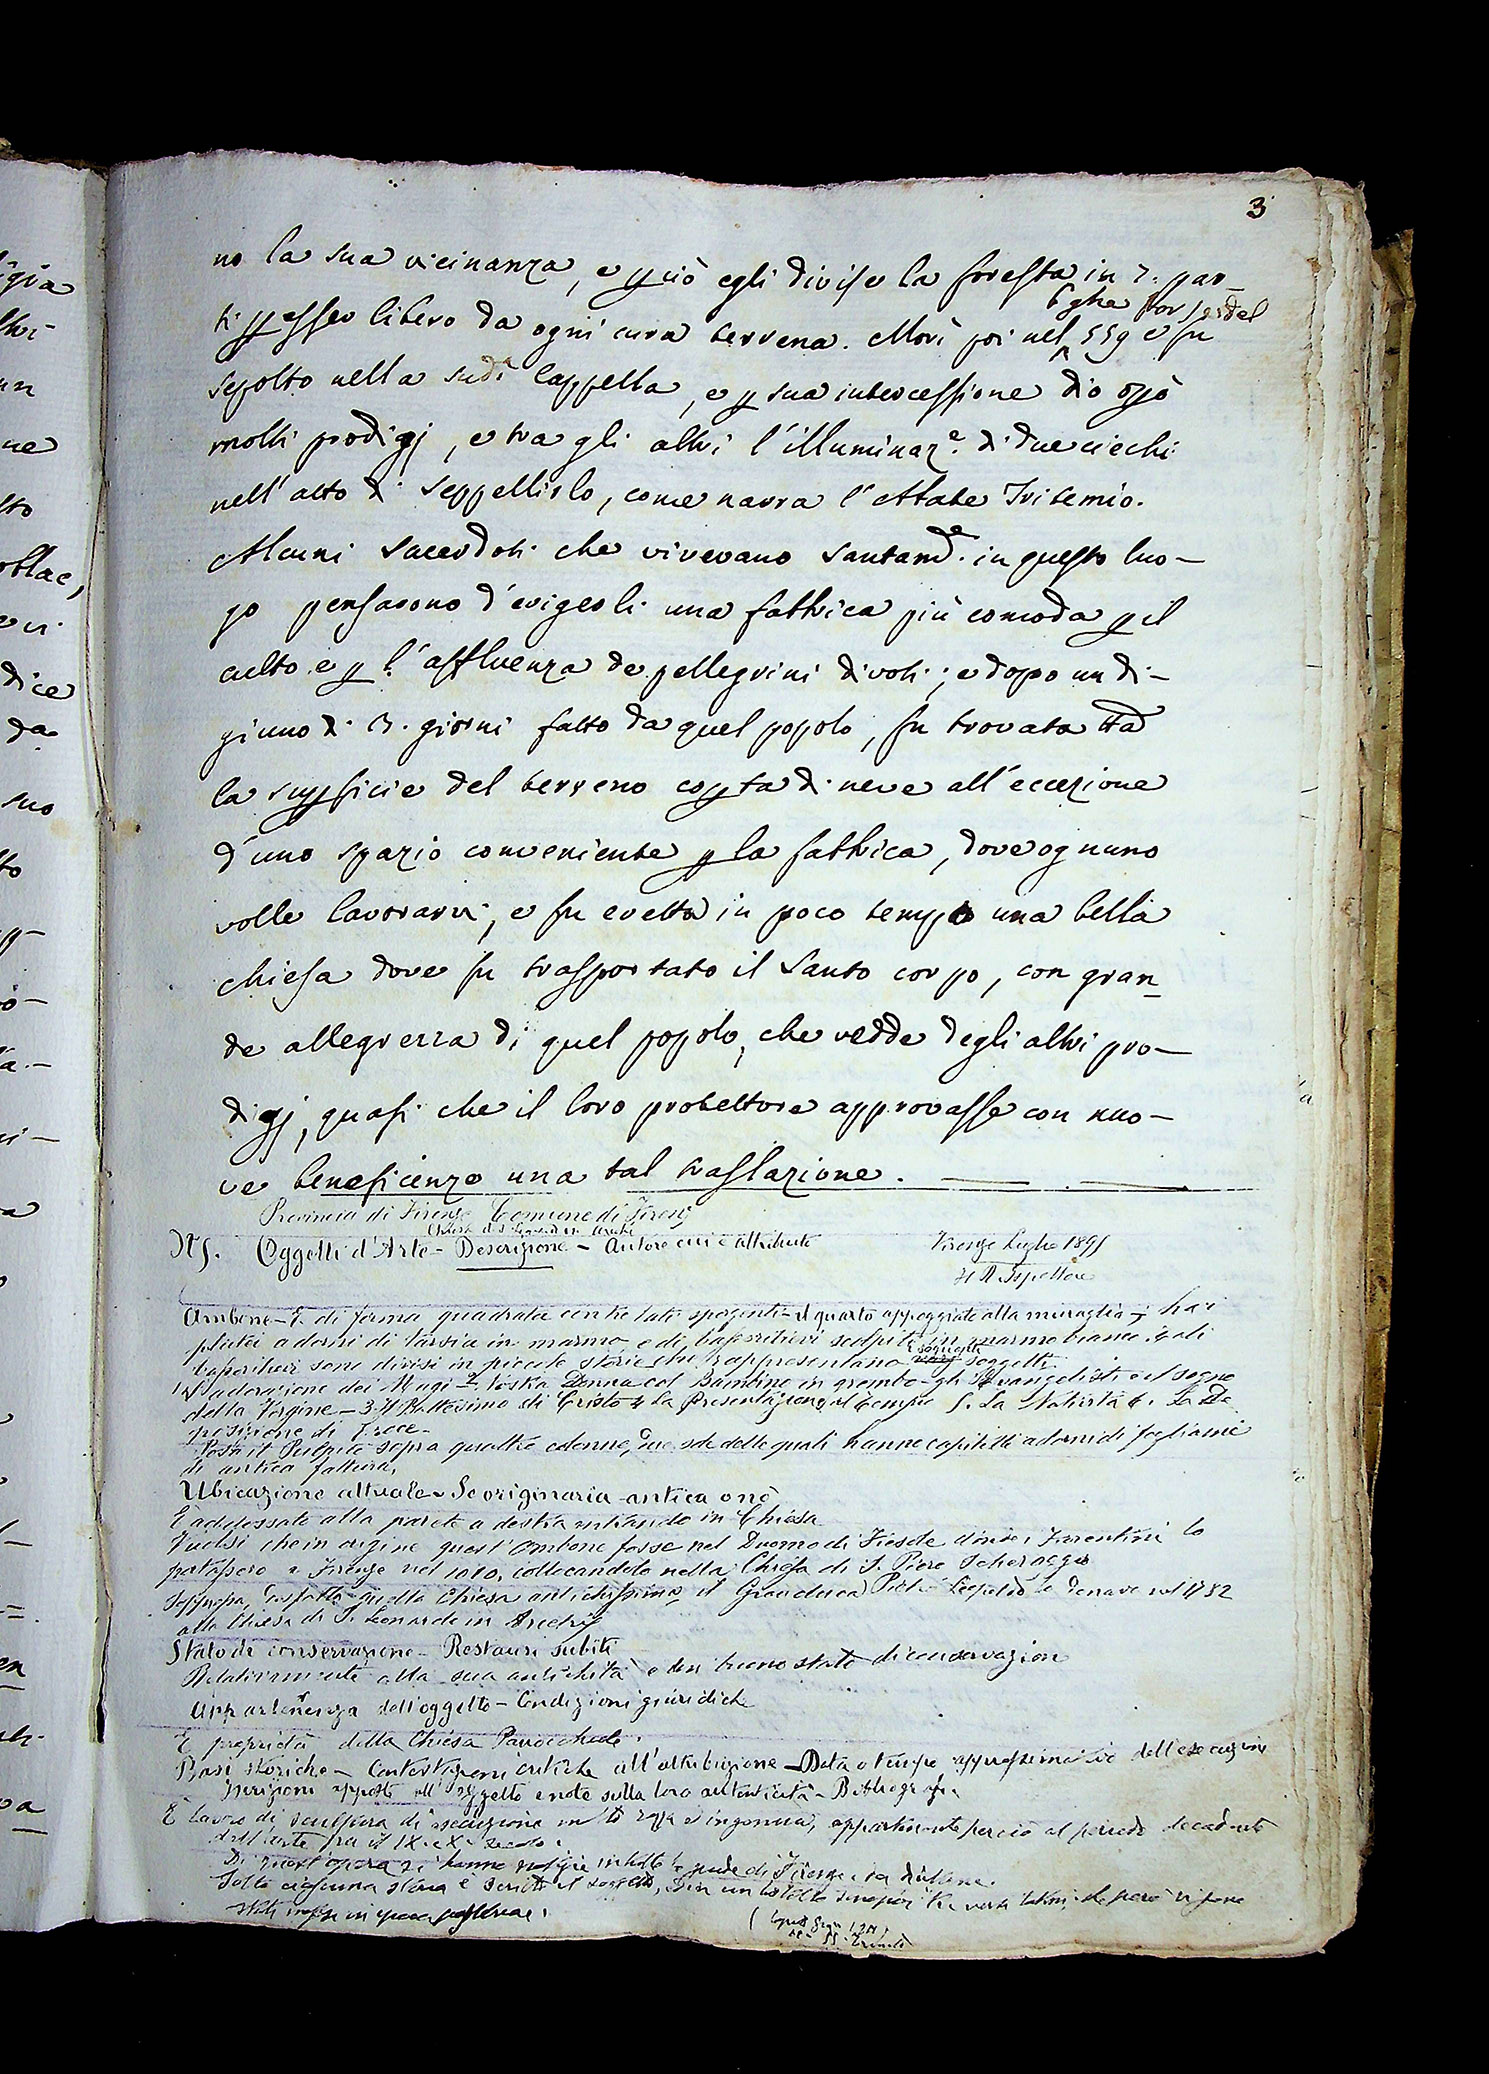 3
no la sua vicinanza, e p ciò egli divise la foresta in 7. par-
ti p esser libero da ogni cura terrena. Morì poi nel 559 e fu
sepolto nella sudª Cappella, e p sua intercessione Dio opò
molti prodigj, e tra gli altri l'illuminazᵉ. di due ciechi
nell'atto di seppellirlo, come narra l'Abate Tritemio.
Alcuni sacerdoti che vivevano santamᵉ. in questo luo-
go pensarono d'erigerli una fabbrica più comoda p il
culto e p l'affluenza de pellegrini divoti; e dopo un di-
giuno di 3. giorni fatto da quel popolo, fu trovata
la suppficie del terreno copta di neve all'eccezione
d'uno spazio conveniente p la fabbrica, dove ognuno
volle lavorarvi, e fu eretta in poco tempo una bella
chiesa dove fu trasportato il Santo corpo, con gran-
de allegrezza di quel popolo, che vedde degli altri pro-
digj, quasi che il loro protettore approvasse con nuo-
ve beneficenze una tal traslazione.
Provincia di Firenze Comune di Firenze
Chiesa di S. Leonardo in Arcetri
Oggetti d'Arte - Descrizione - Autore cui è attribuito
Firenze Luglio 189
Il R. Ispettore
Ambone - È di forma quadrata con tre lati sporgenti - il quarto appoggiato alla muraglia; ha i
plutei adorni di tarsia in marmo e di bassorilievi scolpiti in marmo bianco, i quali
bassorilievi sono divisi in piccole storie che rappresentano i seguenti soggetti.
1ª adorazione dei Magi 2. Nostra Donna col Bambino in grembo - gli Evangelisti e il sogno
della Vergine - 3. Il Battesimo di Cristo 4 La Presentazione al tempio 5. La Natività 6. La De
posizione di Croce.
Posa il Pulpito sopra quattro colonne, due sole delle quali hanno capitelli adorni di fogliami
di antica fattura.
Ubicazione attuale - Se originaria - antica o nò
È addossato alla parete a destra entrando in Chiesa
Vuolsi che in origine quest'Ambone fosse nel Duomo di Fiesole donde i Fiorentini lo
portassero a Firenze nel 1010, collocandolo nella Chiesa di S. Piero Scheraggio
Soppressa, disfatta quella Chiesa antichissima, il Granduca Pietro Leopoldo lo donava nel 1782
alla Chiesa di S. Leonardo in Arcetri
Stato di conservazione - Restauri subiti
Relativamente alla sua antichità è in buono stato di conservazione
Appartenenza dell'oggetto - Condizioni giuridiche
È proprietà della Chiesa Parrocchiale.
Basi storiche - Contestazioni critiche all'attribuzione - Data o tempo approssimativo dell'esecuzione
Iscrizioni apposte all'oggetto e note sulla loro autenticità - Bibliografia
È lavoro di scultura di esecuzione molto rozza e ingenua, appartenente perciò al periodo decadente
dell'arte fra il IX e X secolo.
Di quest'opera si hanno notizie in tutte le guide di Firenze
Sotto ciascuna storia è scritto il soggetto,